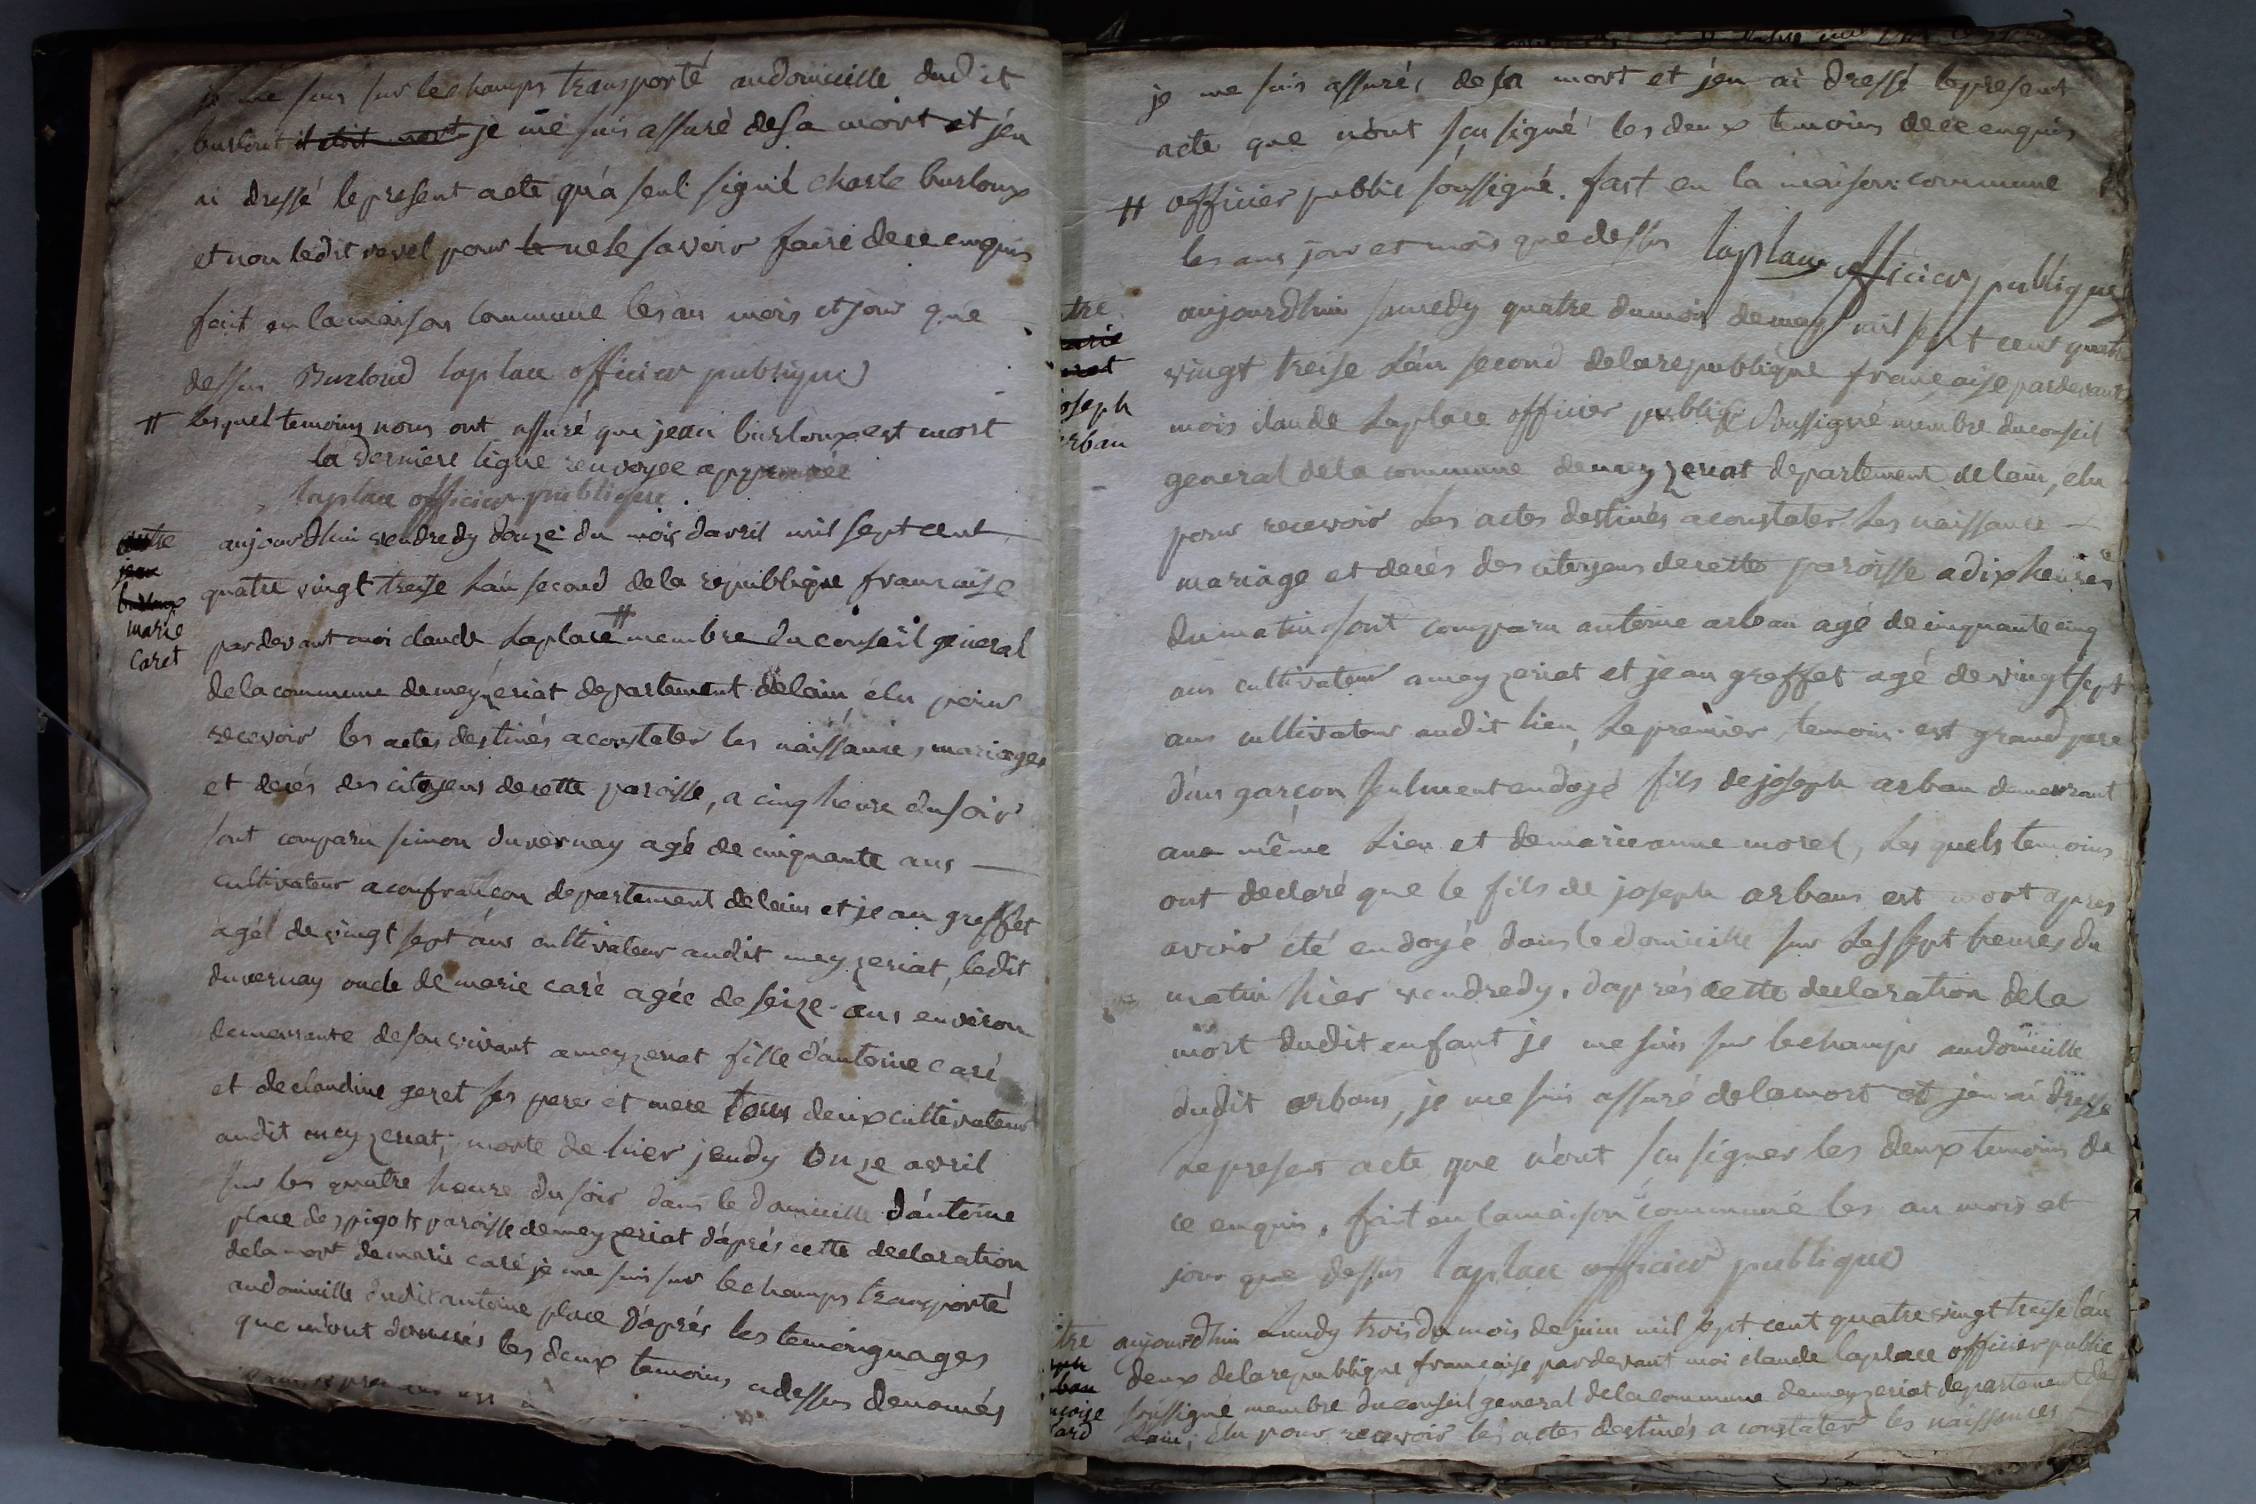 je me suis sur lechamps transporté audomicille dudit
burlout il étoit mort je me suis assuré desa mort et jen
ai dressé lepresent acte qu'a seul signé charle burloux
et non ledit revel pour le nele savoir faire dece enquis
fait en lamaison commune les an mois et jour que
dessus Burloud laplace officier publique
# lesquel temoins nous ont assuré que jean burloux est mort
la derniere ligne renvoyee approuvée
laplace officier publique
autre
jean
burloux
marie
Caret
aujourdhui vendredy douze du mois davril mil sept cent
quatre vingt treise L'an second de la republique francaise
pardevant moi claude Laplace # membre du conseil general
dela commune demeyzeriat departement delain, élu pour
recevoir les actes destinés aconstater les naissance, mariages
et decés des citoyens decette paroisse, a cinq heure dusoir
sont comparu simon duvernay agé de cinquante ans
cultivateur aconfrancon departement delain et jean greffet
agé devingt sept ans cultivateur audit meyzeriat, ledit
duvernay oncle de marie caré agée de seize ans environ
demeurante deson vivant ameyzeriat fille d'antoine caré
et declaudine geret ses pere et mere tous deux cultivateur
audit meyzeriat, morte de hier jeudy onze avril
sur les quatre heure du soir dans le domicille d'antoine
place des pigots paroisse demeyzeriat d'aprés cette declaration
dela mort demarie caré je me suis sur lechamps transporté
audomicille dudit antoine place D'aprés les temoignages
que m'ont donnés les deux temoins cidessus denomés
je me suis assuré, de sa mort et jen ai dressé lepresent
acte que n'ont sçu signé les deux temoins dece enquis
# officier public soussigné. fait en la maison commune
les ans jour et mois que dessus laplace officier publique
tre
marie
caret
joseph
arban
aujourdhui samedy quatre dumois demay mil sept cent quatre
vingt treise L'an second delarepublique francaise pardevant
mois claude Laplace officier public soussigné membre duconseil
general dela commune demeyzeriat departement delain, élu
pour recevoir Les actes destinés aconstater Les naissance
mariage et decés des citoyens decette paroisse adix heures
dumatin sont comparu antoine arban agé de cinquante cinq
ans cultivateur ameyzeriat et jean greffet agé de vingt sept
ans cultivateur audit lieu, Lepremier temoin est grand pere
d'un garçon seulment endoyé fils dejoseph arban demeurant
au même Lieu et demarie anne morel, Lesquels temoins
ont declaré que le fils de joseph arbans est mort aprés
avoir été endoyé dans le domicille sur Les sept heures du
matin hier vendredy, d'aprés cette declaration dela
mort dudit enfant je me suis sur lechamps audomicille
dudit arbans, je me suis assuré delamort et jen ai dressé
Lepresent acte que n'ont sçu signer les deux temoins de
ce enquis, fait en lamaison commune les an mois et
jour que dessus laplace officier publique
tre
joseph
arban
aujourdhui Lundy trois du mois de juin mil sept cent quatre vingt treise L'an
deux delarepublique francaise pardevant moi claude laplace officier public
soussigné membre duconseil general delacommune demeyzeriat departement de
Lain, élu pour recevoir les actes destinés a constater les naissances